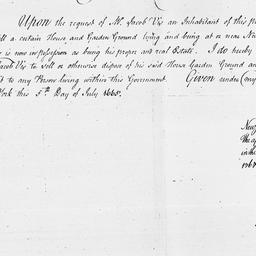 Upon the request of Mr. Jacob Vis an Inhabitant of this p
ell a certain House and Garden Ground lying and being at or near Ne
is now in possession as being his proper and real Estate. I do hereby
Jacob Vis to sell or otherwise dispose of his said House Garden Ground an
t to any Person living within this Government. Given under my
York this 5th Day of July 1665.
New
The a
in the
1767